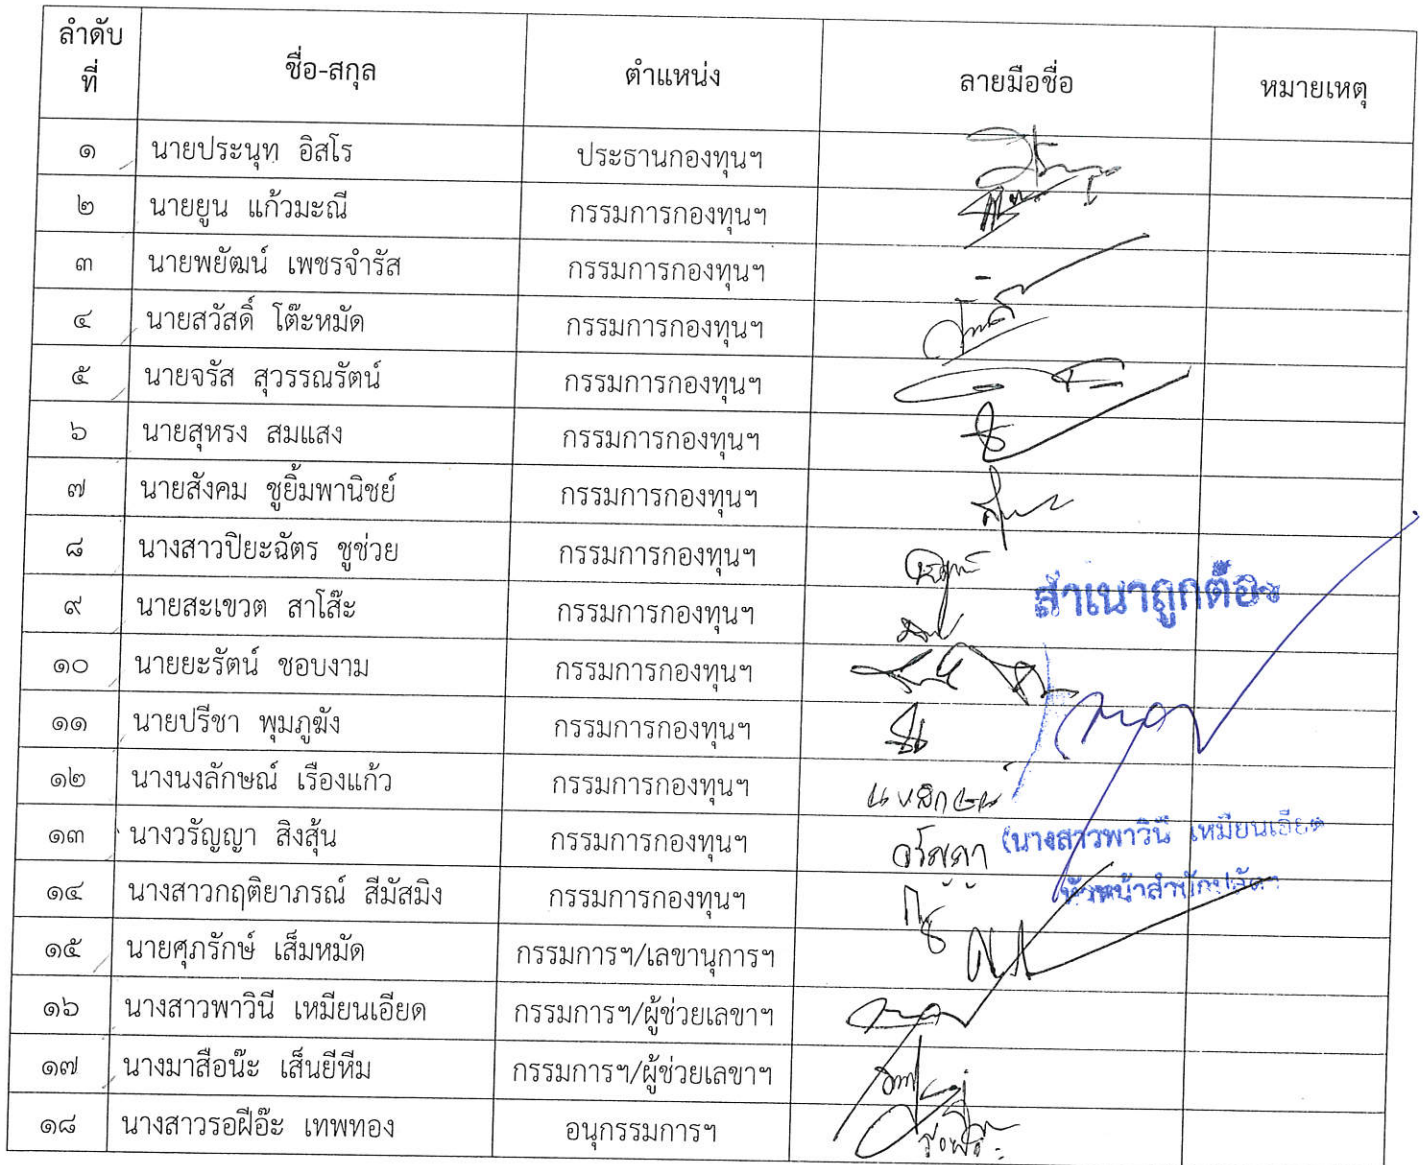 ลำดับ
ที่ ชื่อ-สกุล ตำแหน่ง ลายมือชื่อ หมายเหตุ
๑ นายประนุท อิสโร ประธานกองทุนฯ
๒ นายยูน แก้วมะณี กรรมการกองทุนฯ
๓ นายพยัฒน์ เพชรจำรัส กรรมการกองทุนฯ
๔ นายสวัสดิ์ โต๊ะหมัด กรรมการกองทุนฯ
๕ นายจรัส สุวรรณรัตน์ กรรมการกองทุนฯ
๖ นายสุหรง สมแสง กรรมการกองทุนฯ
๗ นายสังคม ชูยิ้มพานิชย์ กรรมการกองทุนฯ
๘ นางสาวปิยะฉัตร ชูช่วย กรรมการกองทุนฯ
สำเนาถูกต้อง
๙ นายสะเขวต สาโส๊ะ กรรมการกองทุนฯ
๑๐ นายยะรัตน์ ชอบงาม กรรมการกองทุนฯ
๑๑ นายปรีชา พุมภูฆัง กรรมการกองทุนฯ
๑๒ นางนงลักษณ์ เรืองแก้ว กรรมการกองทุนฯ นงลักษณ์
๑๓ นางวรัญญา สิงสุ้น กรรมการกองทุนฯ วรัญญา
(นางสาวพาวินี เหมียนเอียด
๑๔ นางสาวกฤติยาภรณ์ สีมัสมิง กรรมการกองทุนฯ
หัวหน้าสำนักปลัดฯ
๑๕ นายศุภรักษ์ เส็มหมัด กรรมการฯ/เลขานุการฯ
๑๖ นางสาวพาวินี เหมียนเอียด กรรมการฯ/ผู้ช่วยเลขาฯ
๑๗ นางมาสือน๊ะ เส็นยีหีม กรรมการฯ/ผู้ช่วยเลขาฯ
๑๘ นางสาวรอฝีอ๊ะ เทพทอง อนุกรรมการฯ